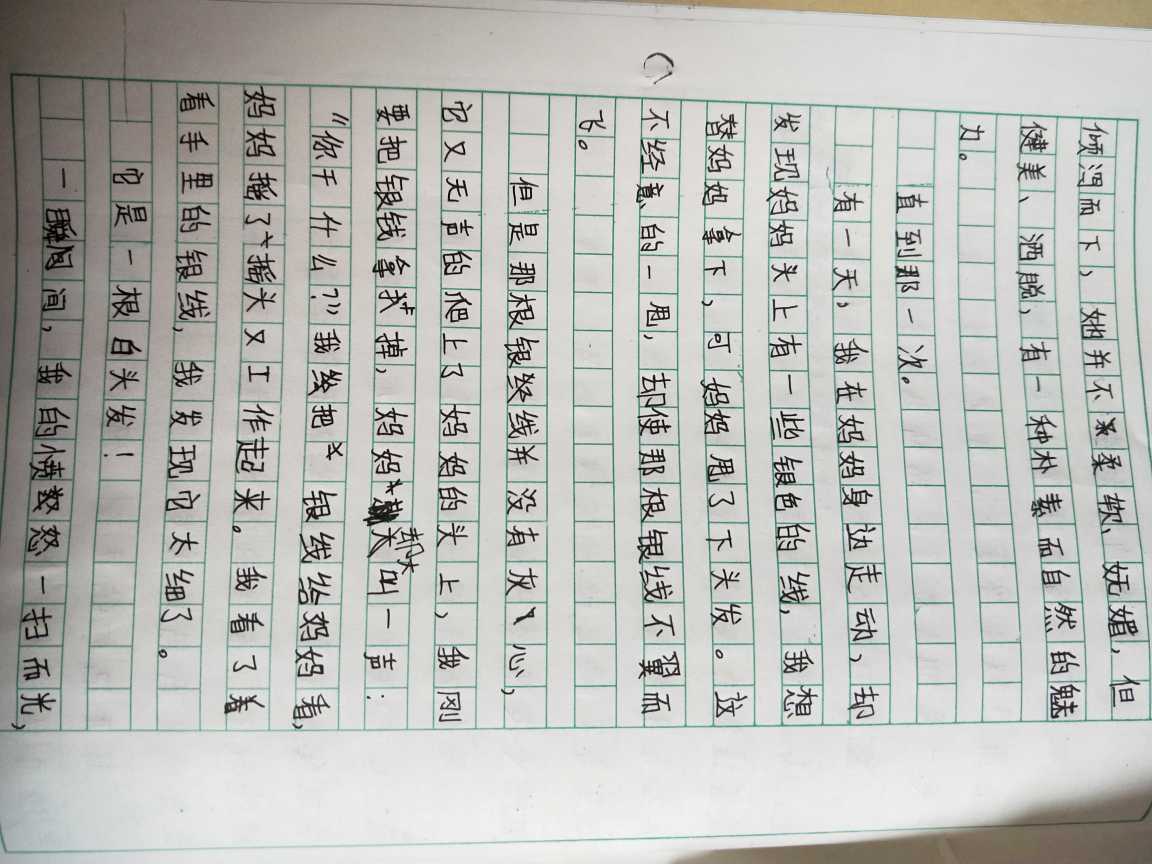 倾泻而下，她并不柔软、妩媚，但
健美、洒脱，有一种朴素而自然的魅
力。
直到那一次。
有一天，我在妈妈身边走动，却
发现妈妈头上有一些银色的线，我想
替妈妈拿下，可妈妈甩了下头发。这
不经意的一甩，却使那根银线不翼而
飞。
但是那根银丝线并没有灰心，
它又无声的爬上了妈妈的头上，我刚
要把银钱拿掉，妈妈却大叫一声：
“你干什么？”我给把银线给妈妈看，
妈妈摇了摇头又工作起来。我看了着
看手里的银线，我发现它太细了。
它是一根白头发！
一瞬间间，我的愤怒一扫而光，